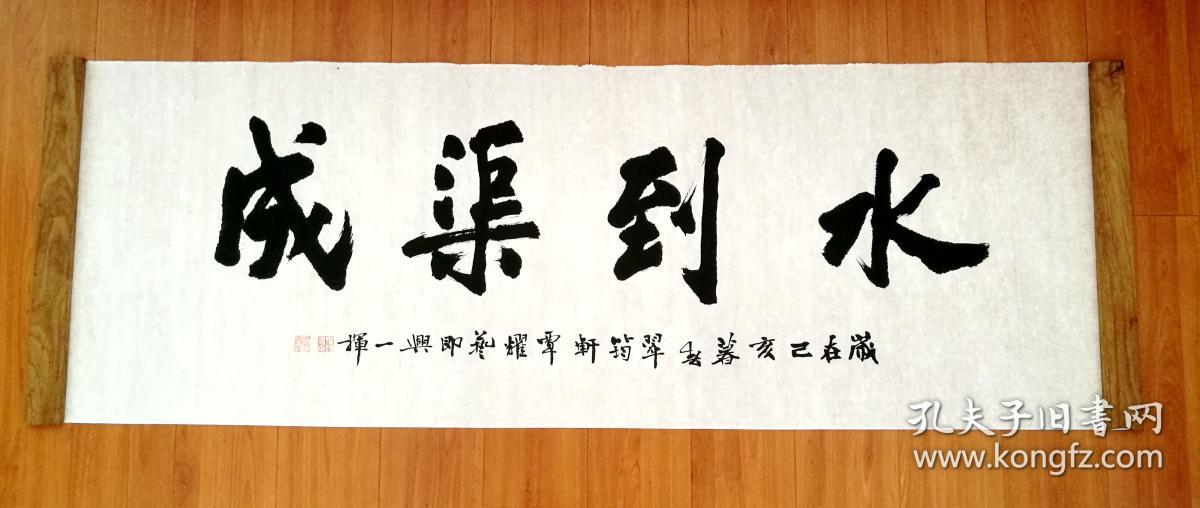 水到渠成
歲在己亥暮春翠筠軒覃耀藝即興一揮
孔夫子旧書网
www.kongfz.com